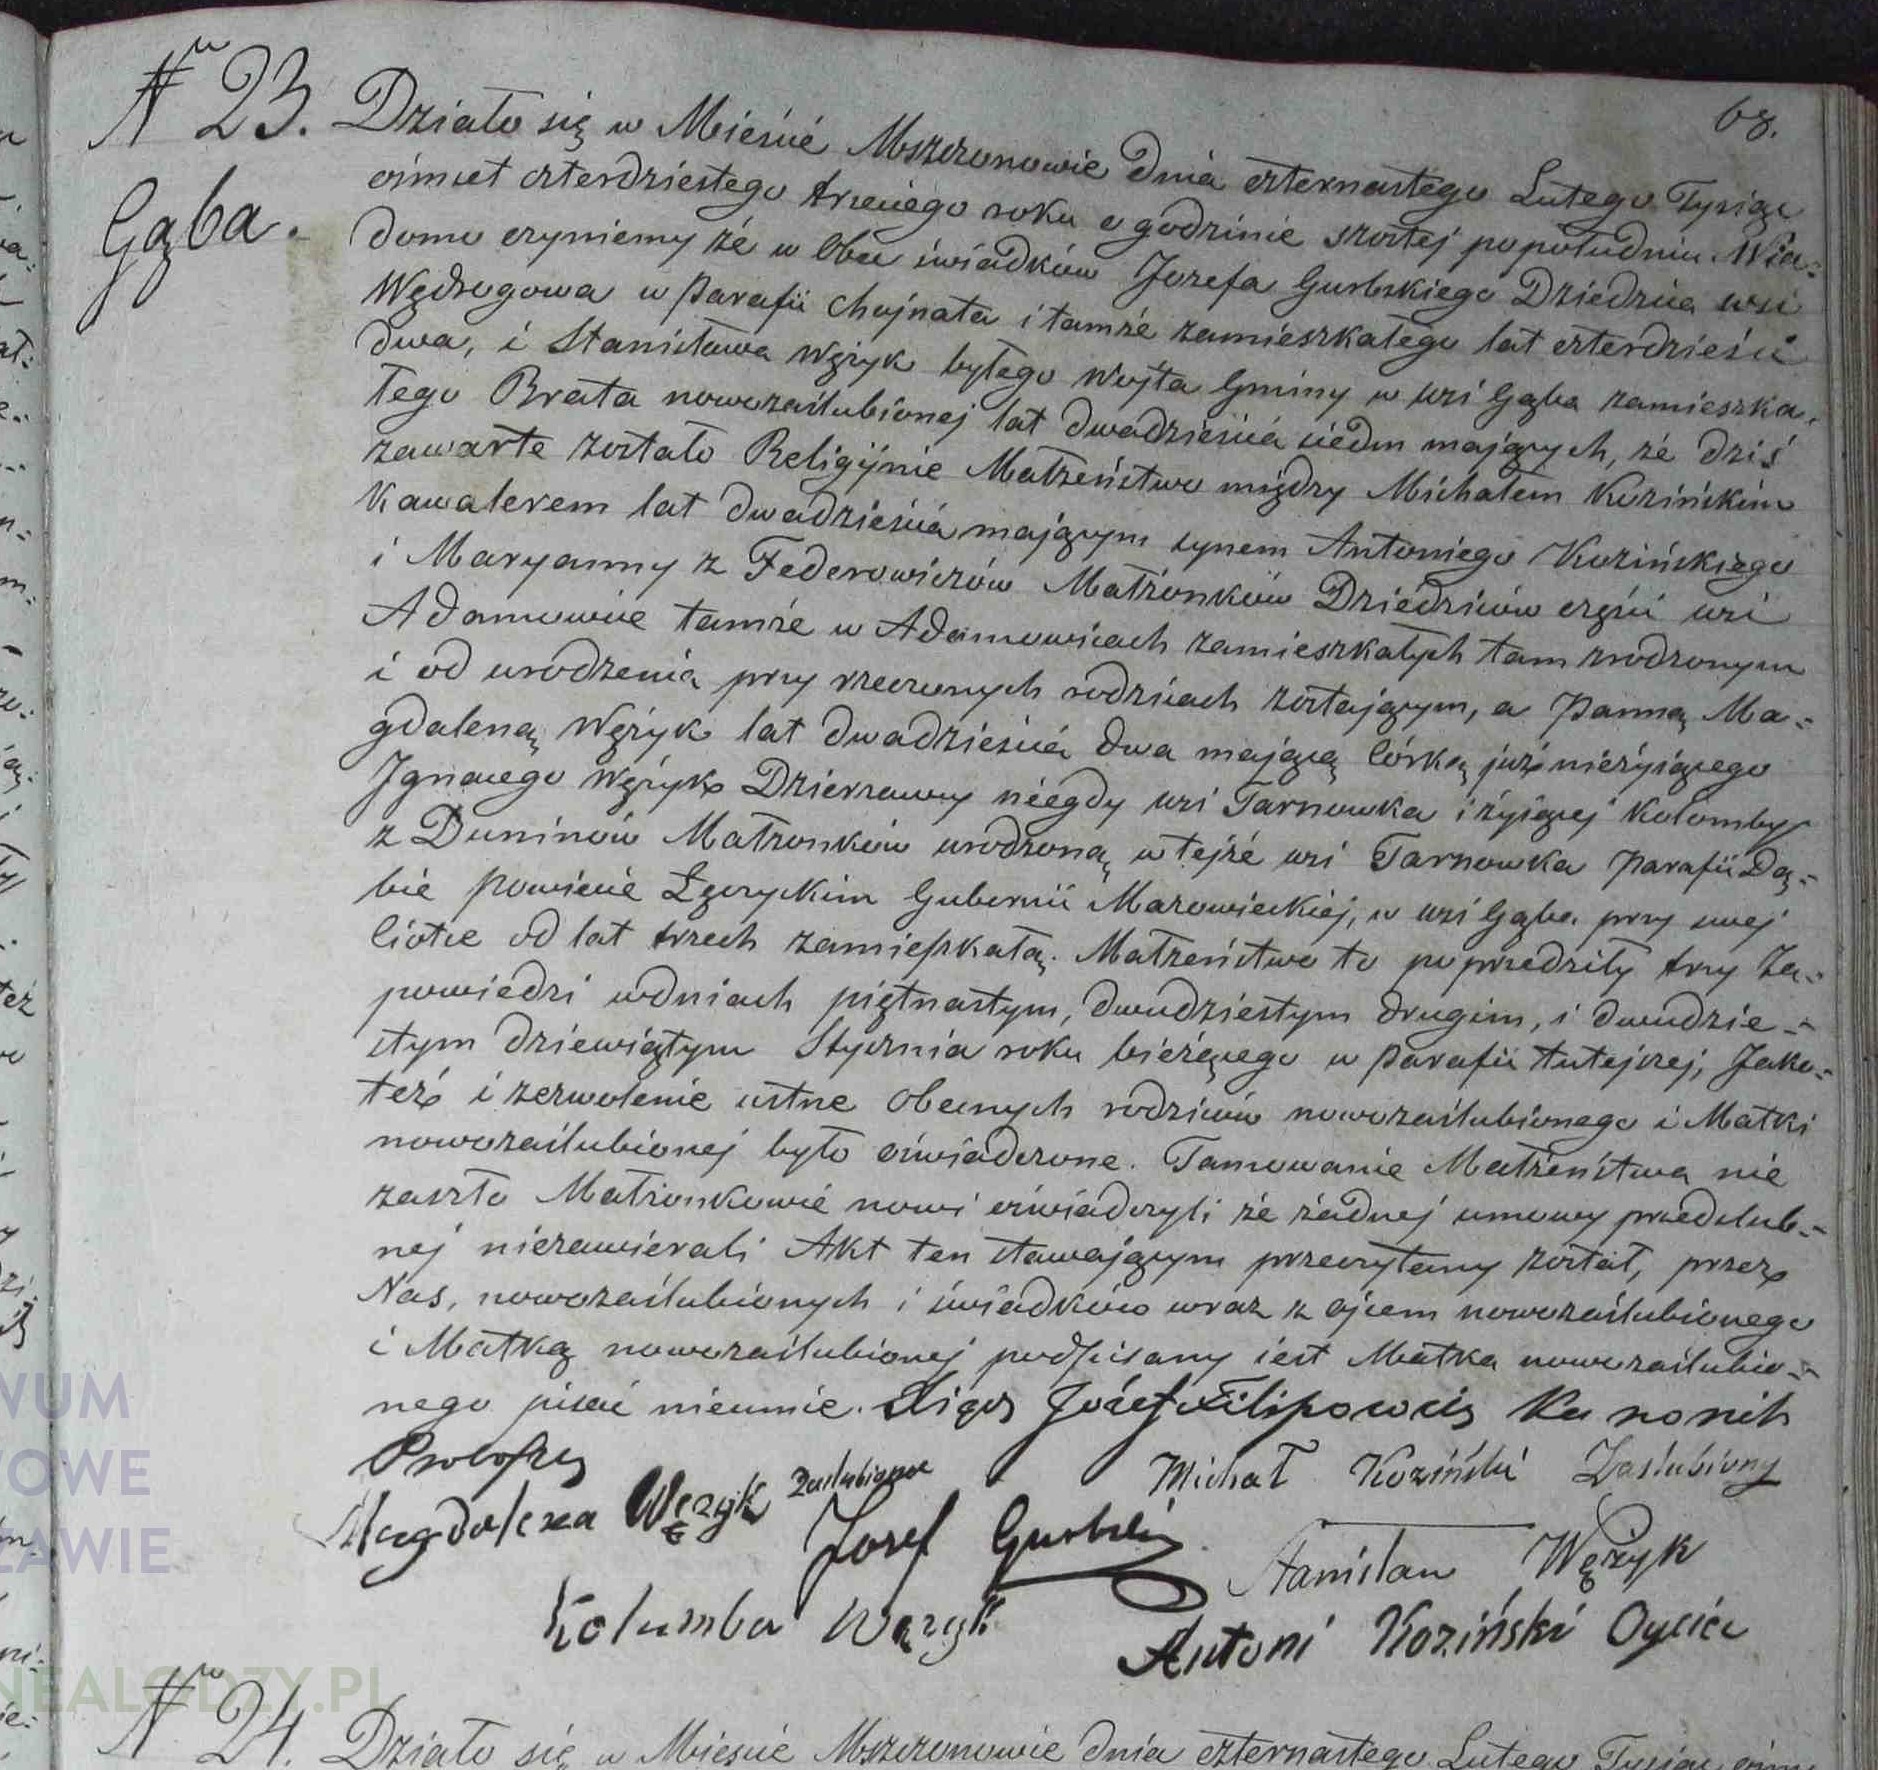 68.
Nro 23. Działo się w Mieście Mszczonowie dnia czternastego Lutego Tysiąc
Gąba. ośmset czterdziestego trzeciego roku o godzinie szóstej popołudniu Wia-
domo czyniemy że w Obec świadków Jozefa Gurbskiego Dziedzica wsi
Wędrogowa w parafii Chojnata i tamże zamieszkałego lat czterdzieści
dwa, i Stanisława Wężyk byłego Wojta Gminy w wsi Gąba zamieszka-
łego Brata nowozaślubionej lat dwadzieścia siedm mających, że dziś
zawarte zostało Religijnie Małżeństwo między Michałem Kozińskim
Kawalerem lat dwadzieścia mającym synem Antoniego Kozińskiego
i Maryanny z Federowiczów Małżonków Dziedziców części wsi
Adamowice tamże w Adamowicach zamieszkałych tam zrodzonym
i od urodzenia przy rzeczonych rodzicach zostającym, a Panną Ma-
gdaleną Wężyk lat dwadzieścia dwa mającą Córką już nieżyiącego
Ignacego Wężyka Dzierzawcy niegdy wsi Tarnowka i żyiącej Kolomby
z Duninów Małżonków urodzoną w tejże wsi Tarnowka parafii Dą-
bie powiecie Łęczyckim Gubernii Mazowieckiej, w wsi Gąba przy swej
Ciotce od lat trzech zamieszkałą. Małżeństwo to poprzedziły trzy Za-
powiedzi w dniach piętnastym, dwudziestym drugim, i dwudzie-
stym dziewiątym Stycznia roku bieżącego w parafii tutejszej, Jako-
też i zezwolenie ustne obecnych rodziców nowozaślubionego i Matki
nowozaślubionej było oświadczone. Tamowanie Małżeństwa nie
zaszło Małżonkowie nowi oświadczyli że żadnej umowy przedślub-
nej niezawierali Akt ten stawającym przeczytany został, przez
Nas, nowozaślubionych i świadków wraz z ojcem nowozaślubionego
i Matką nowozaślubionej podpisany iest Matka nowozaślubio-
nego pisać nieumie. Xiądz Józef Filipowicz Kanonik
Proboszcz
Michał Koziński Zaślubiony
Magdalena Wężyk Zaślubiona
Jozef Gurbski
Stanisław Wężyk
Kolumba Wężyk
Antoni Koziński Oyciec
Nro 24. Działo się w Mieście Mszczonowie dnia czternastego Lutego Tysiąc
WUM
OWE
ZAWIE
NEALODZY.PL